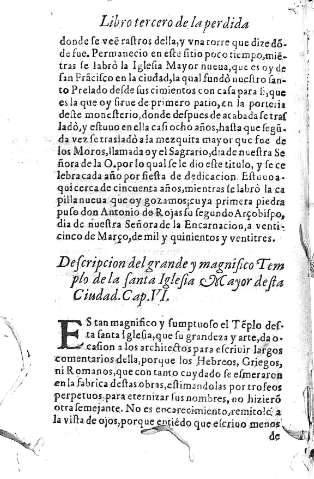 Libro tercero de la perdida
donde se veẽ rastros della, y vna torre que dize dõ-
de fue. Permanecio en este sitio poco tiempo, miẽ-
tras se labrò la Iglesia Mayor nueua, que es oy de
san Frãcisco en la ciudad, la qual fundò nuestro san-
to Prelado desde sus cimientos con casa para si, que
es la que oy sirue de primero patio, en la porteria
deste monesterio, donde despues de acabada se tras
ladò, y estuuo en ella casi ocho años, hasta que segũ-
da vez se trasladò a la mezquita mayor que fue de
los Moros, llamada oy el Sagrario, dia de nuestra Se
ñora de la O, por lo qual se le dio este titulo, y se ce
lebra cada año por fiesta de dedicacion. Estuuo a-
qui cerca de cincuenta años, mientras se labrò la ca
pilla nueua que oy gozamos; cuya primera piedra
puso don Antonio de Rojas su segundo Arçobispo,
dia de nuestra Señora de la Encarnacion, a venti-
cinco de Março, de mil y quinientos y ventitres.
Descripcion del grande y magnifico Tem
plo de la santa Iglesia Mayor desta
Ciudad. Cap. VI.
ES tan magnifico y sumptuoso el Tẽplo des-
ta santa Iglesia, que su grandeza y arte, da o-
casion a los architectos para escriuir largos
comentarios della, porque los Hebreos, Griegos,
ni Romanos, que con tanto cuydado se esmeraron
en la fabrica destas obras, estimandolas por trofeos
perpetuos, para eternizar sus nombres, no hizierõ
otra semejante. No es encarecimiento, remitolo a
la vista de ojos, porque entiẽdo que escriuo menos
de